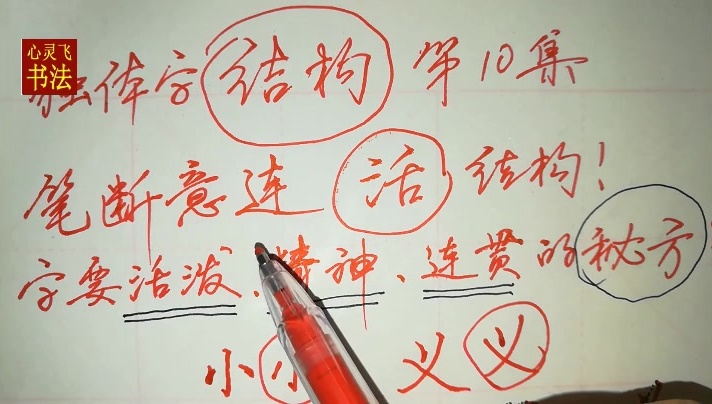 心灵飞
书法
独体字结构 第10集
笔断意连 活结构！
字要活泼、精神、连贯的秘方
小小 义义